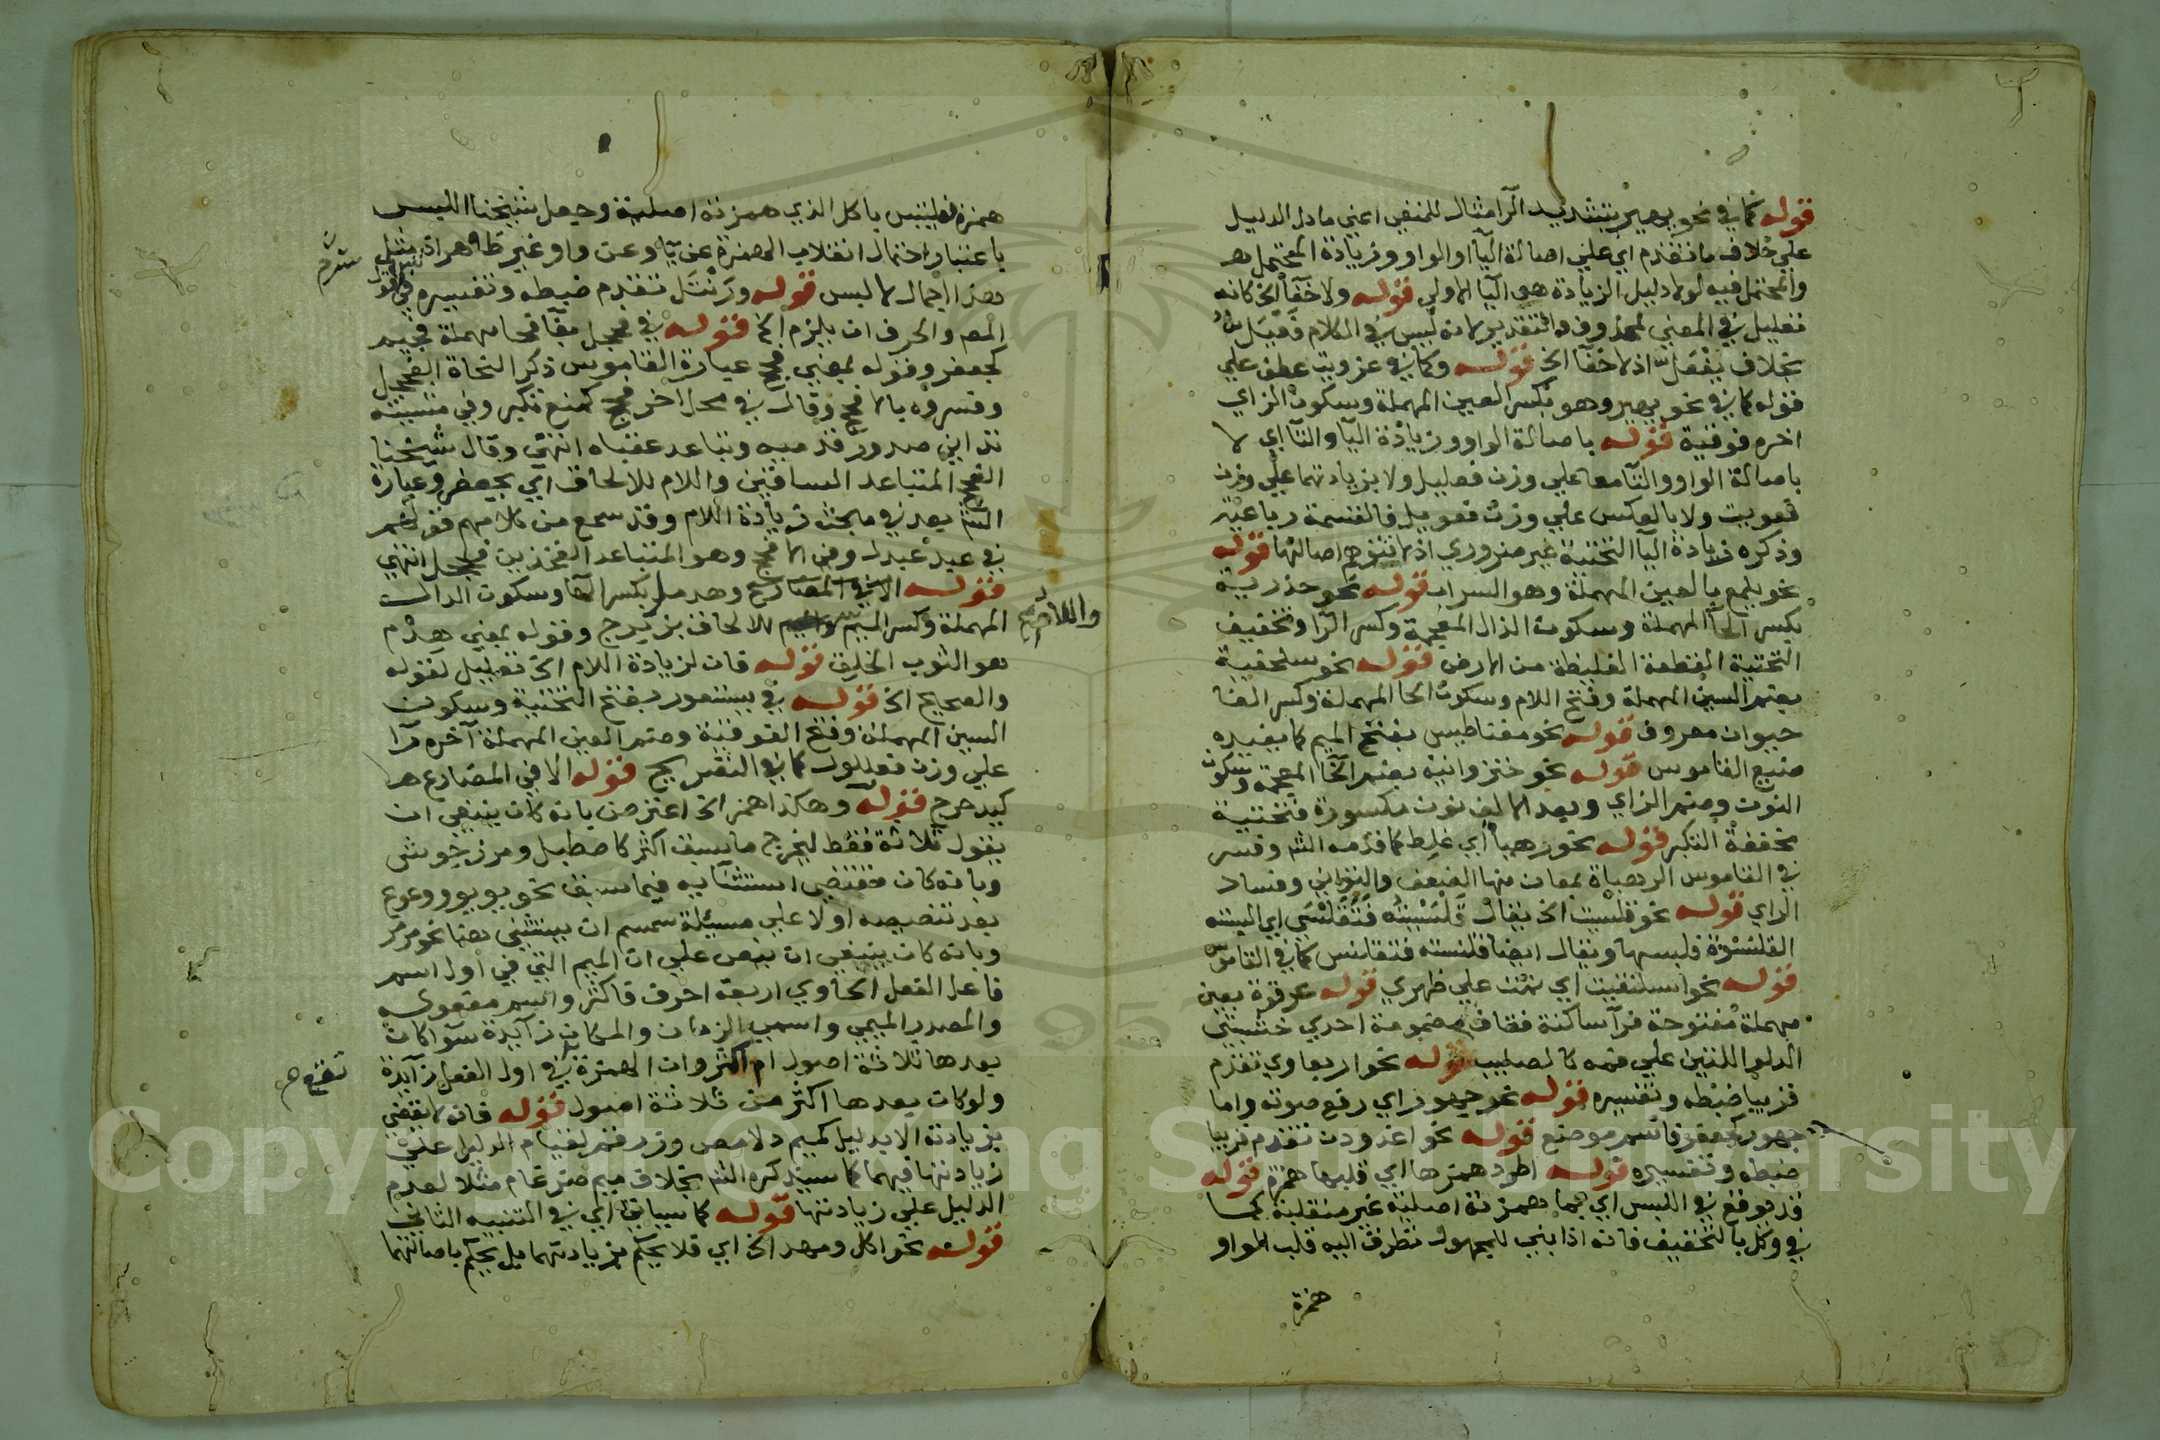 قوله كما في نحو يهير بتشديد الرآ مثال للمنفي اعني ما دل الدليل
علي خلاف ما تقدم اي علي اصالة اليآ او الواو وزيادة المحتمل هـ
والمحتمل فيه لولا دليل الزيادة هي اليآ الاولي قوله ولا خفآ الخ كانه
تعليل في المعني لمحذوف والتقدير لانه ليس في الكلام فعيل
بخلاف يفعل اذ لا خفآ الخ قوله وكما في عزويت عطف علي
قوله كما في نحو يهير وهو بكسر العين المهملة وسكون الزاي
اخره فوقية قوله باصالة الواو وزيادة اليآ والتآ اي لا
باصالة الواو والتآ معا علي وزن فعليل ولا بزيادتهما علي وزن
فعويت ولا بالعكس علي وزن فعويل فالقسمة رباعية
وذكره زيادة اليآ التحتية غير ضروري اذ لا تتوهم اصالتها قوله
نحو يلمع بالعين المهملة وهو السراب قوله نحو حذرية
بكسر الحآ المهملة وسكون الذال المعجمة وكسر الرآ وتخفيف
التحتية القطعة الغليظة من الارض قوله نحو سلحفية
بضم السين المهملة وفتح اللام وسكون الحا المهملة وكسر الفا
حيوان معروف قوله نحو مغناطيس بفتح الميم كما يفيده
صنيع القاموس قوله نحو خنزوانية بضم الخآ المعجمة وسكون
النون وضم الزاي وبعد الالف نون مكسورة فتحتية
مخففة التكبر قوله نحو رهيأ اي غلط كما قدمه الش وفسر
في القاموس الرهيأة بمعان منها الضعف والتواني وفساد
الراي قوله نحو قلسيت الخ يقال قلنسيته فتقلنسي اي البسته
القلنسوة فلبسها ويقال ايضا قلنسته فتقلنس كما في القاموس
قوله نحو اسلنقيت اي نمت علي ظهري قوله عرقوة بعين
مهملة مفتوحة فرآ ساكنة فقاف مضمومة احدي خشبتي
الدلو اللتين علي فمه كالصليب قوله نحو اربعاوي تقدم
قريبا ضبطه وتفسيره قوله نحو جهور اي رفع صوته واما
جهور كجعفر فاسم موضع قوله نحو اغدودن تقدم قريبا
ضبطه وتفسيره قوله اطرد همزها اي قلبها همزة قوله
قد يوقع في اللبس اي بما همزته اصلية غير منقلبة كما
في وكل بالتخفيف فانه اذا بني للمجهول تطرق اليه قلب الواو
همزة
همزة فيلتبس باكل الذي همزته اصلية وجعل شيخنا اللبس
باعتبار احتمال انقلاب الهمزة عن يآ وعن واو غير ظاهر اذ مثل
هذا اجمال لا لبس قوله ورنتل تقدم ضبطه وتفسيره في
المص والحرف ان يلزم الخ قوله في فحجل بفآ فحا مهملة فجيم
كجعفر وقوله بمعني فحج عبارة القاموس ذكر النحاة الفحجل
وفسروه بالافحج وقال في محل اخر فحج كمنع تكبر وفي مشيته
تداني صدور قدميه وتباعد عقباه انتهي وقال شيخنا
الفحج المتباعد الساقين واللام للالحاق اي بجعفر وعبارة
الش بعد في مبحث زيادة اللام وقد سمع من كلامهم قولهم
في عبد عبدل وفي الافحج وهو المتباعد الفخذين فحجل انتهي
قوله الا في المضارع وهدمل بكسر الهآ وسكون الدال
المهملة وكسر الميم للالحاق بزبرج وقوله بمعني هدم
هو الثوب الخلق قوله فان لزيادة اللام الخ تعليل لقوله
والصحيح الخ قوله في يستعور بفتح التحتية وسكون
السين المهملة وفتح الفوقية وضم العين المهملة آخره رآ
علي وزن فعللول كما في التصريح قوله الا في المضارع هـ
كيدحرج قوله وهكذا همز الخ اعترض بانه كان ينبغي ان
يقول ثلاثة فقط ليخرج ما يسبق اكثر كاصطبل ومرزجوش
وبانه كان مقتضي استثنآيه فيما سبق نحو يويو ووعوع
بعد تنصيصه اولا علي مسئلة سمسم ان يستثني هنا نحو مرمر
وبانه كان ينبغي ان ينص علي ان الميم التي في اول اسم
فاعل الفعل الحاوي اربعة احرف فاكثر واسم مفعوله
والمصدر الميمي واسمي الزمان والمكان زآيدة سوآ كان
بعدها ثلاثة اصول ام اكثر وان الهمزة في اول الفعل زآيدة
ولو كان بعدها اكثر من ثلاثة اصول قوله فان لا نقضي
بزيادته الا بدليل كميم دلامص وزرقم لقيام الدليل علي
زيادتها فيهما كما سيذكره الش بخلاف ميم ضرغام مثلا لعدم
الدليل علي زيادتها قوله كما سياتي اي في التنبيه الثاني
قوله نحو اكل ومهد الخ اي فلا يحكم بزيادتهما بل يحكم باصالتهما
Copyright © King Saud University